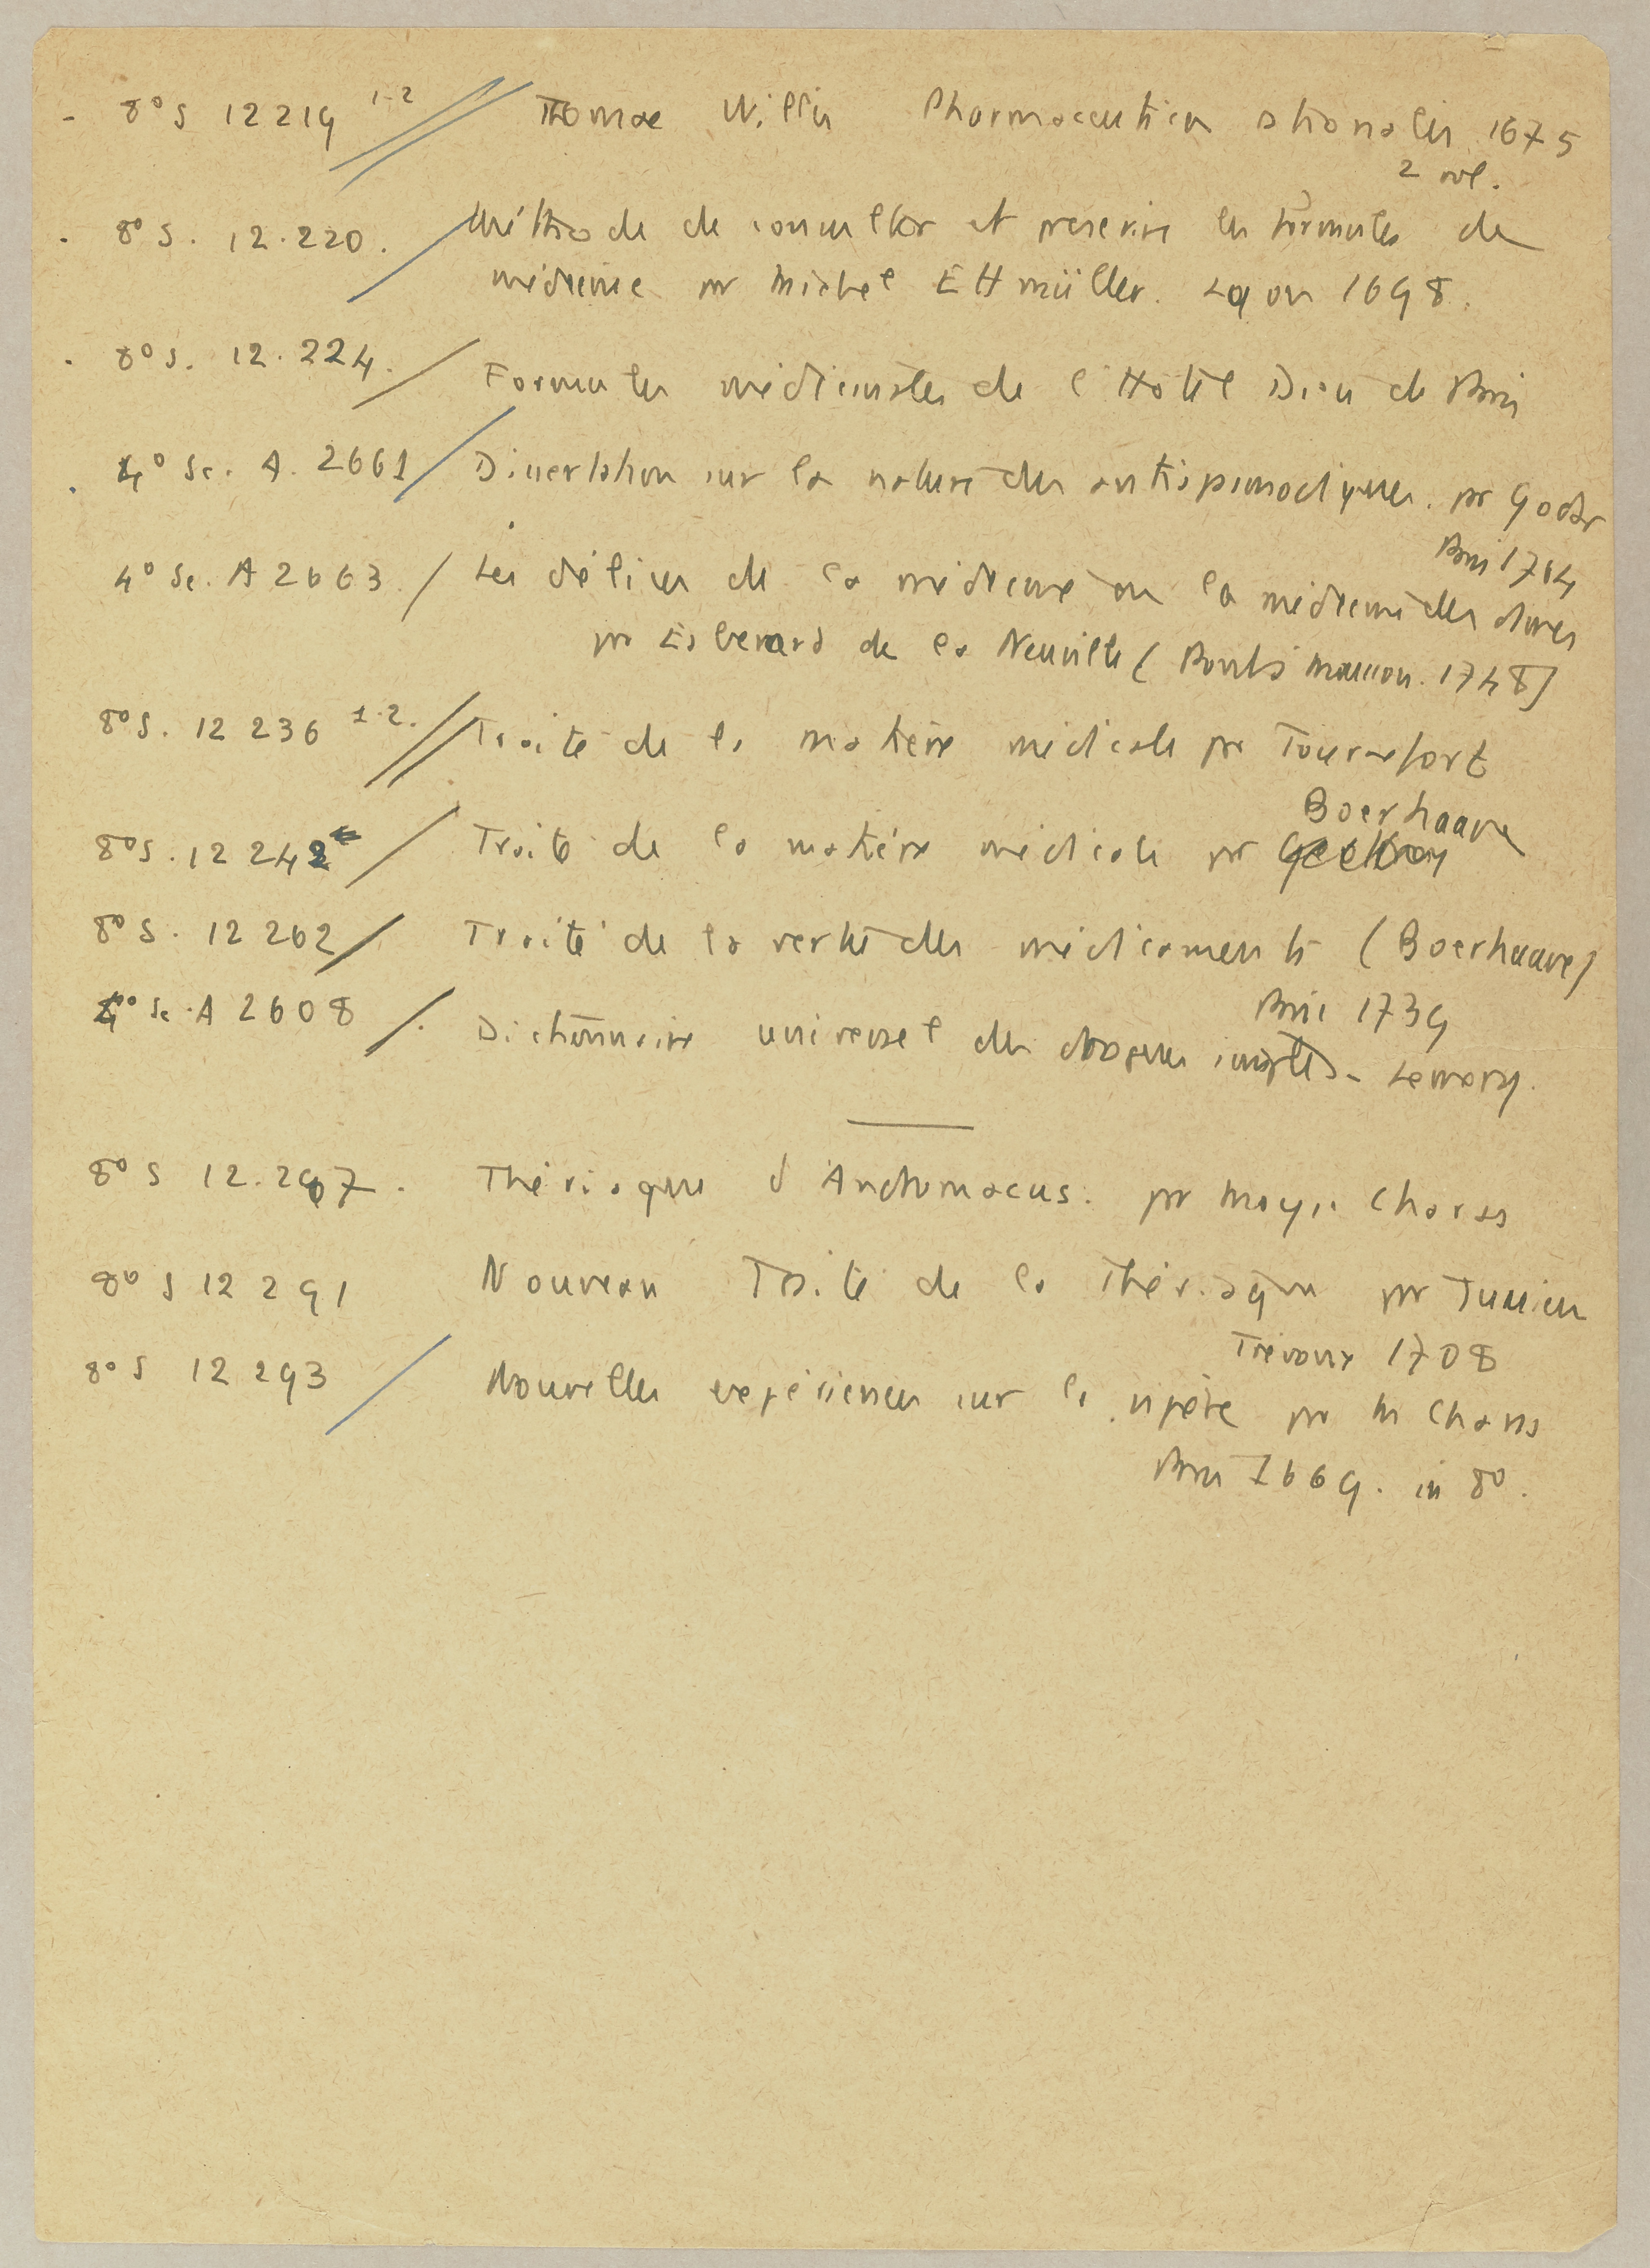 - 8° S 12219 1-2 // Thomae Willis Pharmaceutica rationalis 1675
2 vol.
. 8° S. 12.220. / Méthode de consulter et prescrire les formules de
médecine par Michel Ettmüller. Lyon 1698.
. 8° S. 12.224. / Formules médicinales de l'Hôtel Dieu de Paris
. 4° Sc. A. 2661 / Dissertation sur la nature des antispasmodiques. par Godar
Paris 1764
4° Sc. A 2663 / Les délices de la médecine ou la médecine des dames
par de la Neuville (Pont à Mousson. 1748)
8° S. 12 236 1-2. // Traité de la matière médicale par Tournefort
Boerhaave
8° S. 12 242 / Traité de la matière médicale par Geoffroy
8° S. 12 262 / Traité de la vertu des médicaments (Boerhaave)
Paris 1739
4° Sc. A 2608 / Dictionnaire universel des drogues simples - Lemery.
8° S 12.297. Thériaque d'Andromacus. par Moyse Charas
8° S 12 291 Nouveau Traité de la Thériaque par Jussieu
Trévoux 1708
8° S 12 293 / Nouvelles expériences sur la vipère par M Charas
Paris 1669. in 8°.